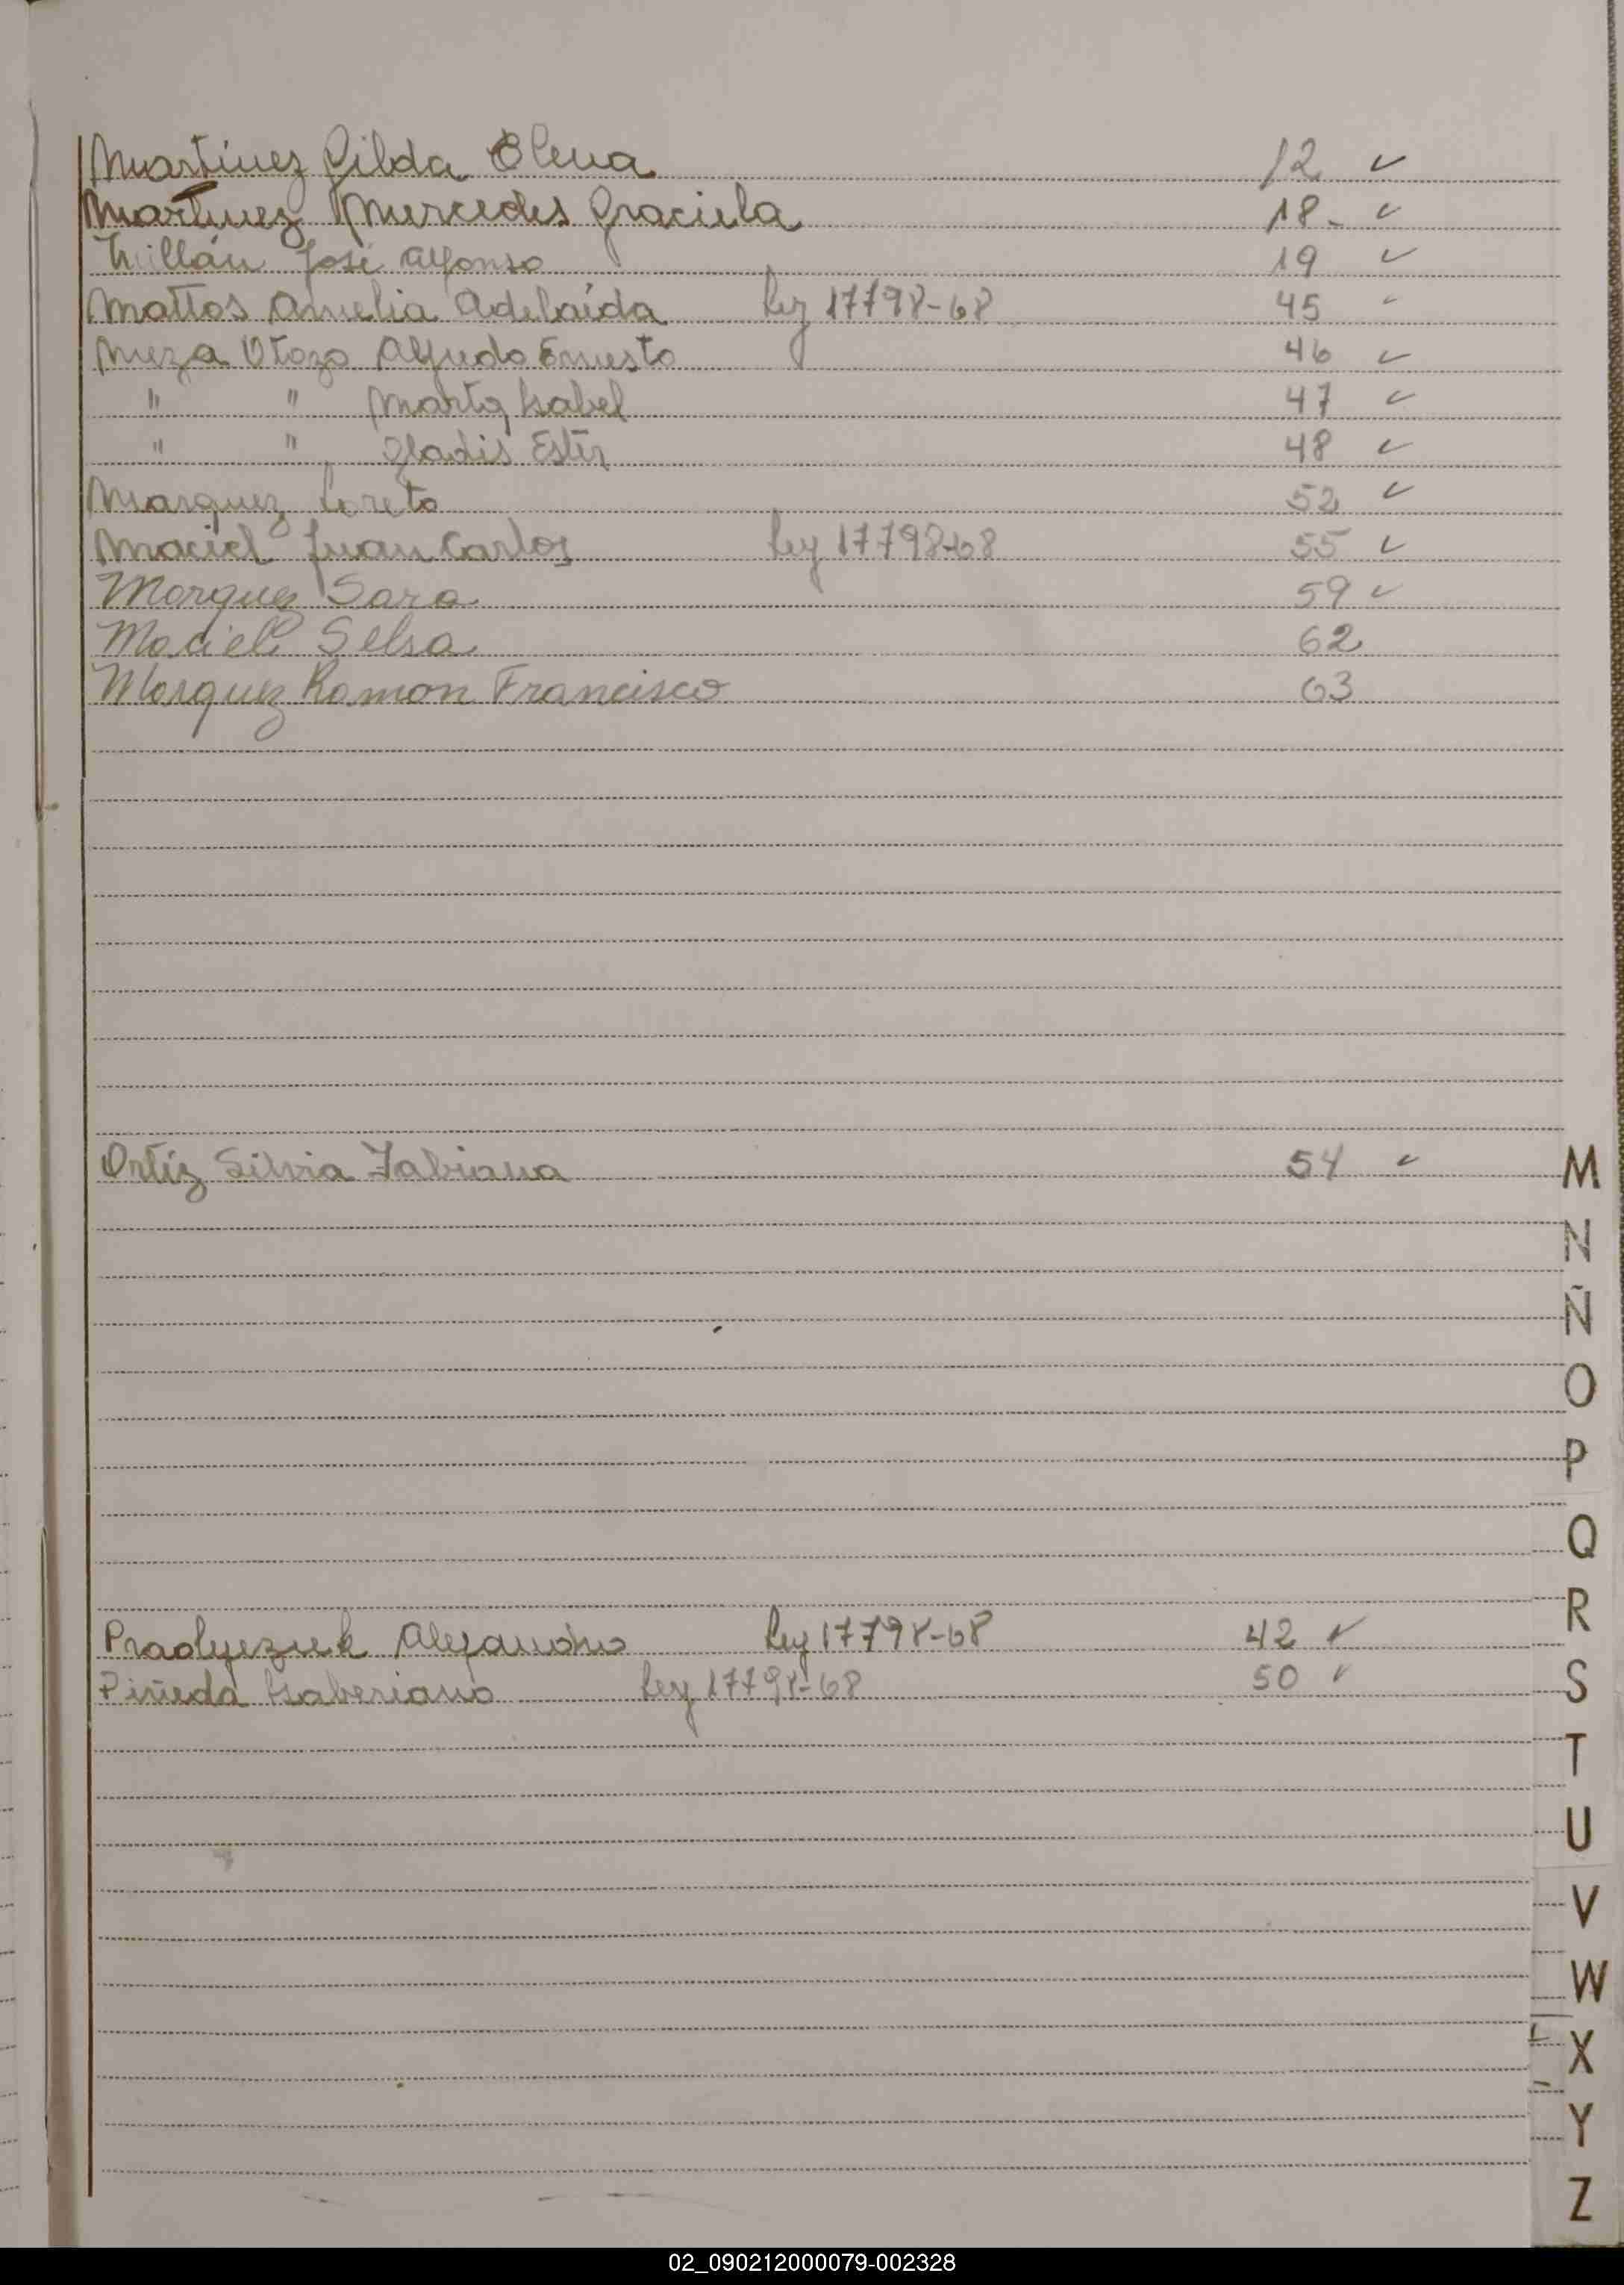 Martinez Gilda Elena 12 ✓
Martinez Mercedes Graciela 18- ✓
Millán José Alfonso 19 ✓
Mattos Amelia Adelaida Ley 17798-68 45 ✓
Meza Otazo Alfredo Ernesto 46 ✓
" " Marta Isabel 47 ✓
" " Gladis Ester 48 ✓
Marquez Loreto 52 ✓
Maciel Juan Carlos Ley 17798-68 55 ✓
Marquez Sara 59 ✓
Maciel Selsa 62
Marquez Ramon Francisco 63
Ortíz Silvia Fabiana 54 ✓
M
N
Ñ
O
P
Q
R
Alejandro Ley 17798-68 42 ✓
Piñeda Ley 17798-68 50 ✓
S
T
U
V
W
X
Y
Z
02_090212000079-002328